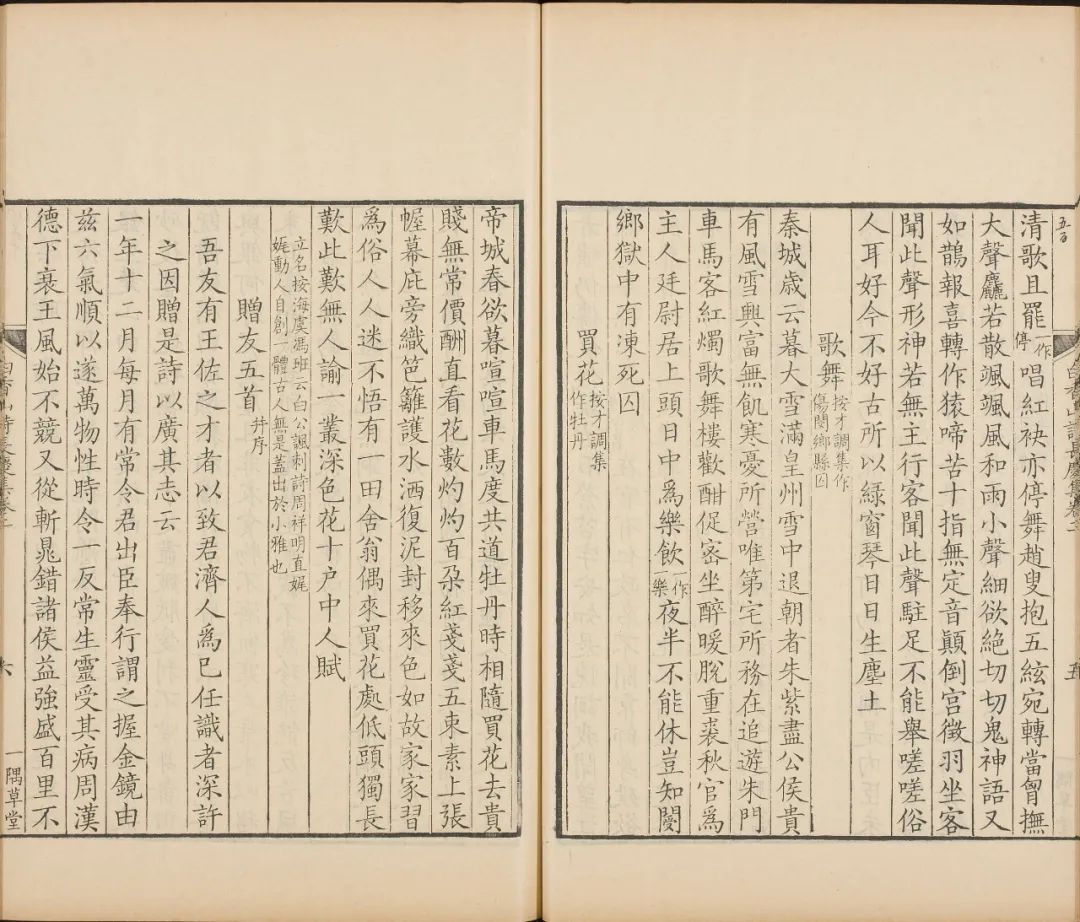 清歌且罷一作停唱紅袂亦停舞趙叟抱五絃宛轉當胷撫
大聲麤若散颯颯風和雨小聲細欲絕切切鬼神語又
如鵲報喜轉作猿啼苦十指無定音顛倒宮徵羽坐客
聞此聲形神若無主行客聞此聲駐足不能舉嗟嗟俗
人耳好今不好古所以綠窗琴日日生塵土
歌舞按才調集作傷閿鄉縣囚
秦城歲云暮大雪滿皇州雪中退朝者朱紫盡公侯貴
有風雪興富無飢寒憂所營唯第宅所務在追遊朱門
車馬客紅燭歌舞樓歡酣促密坐醉暖脫重裘秋官為
主人廷尉居上頭日中為樂飲一作飲樂夜半不能休豈知閿
鄉獄中有凍死囚
買花按才調集作牡丹
帝城春欲暮喧喧車馬度共道牡丹時相隨買花去貴
賤無常價酬直看花數灼灼百朶紅戔戔五束素上張
幄幕庇旁織笆籬護水洒復泥封移來色如故家家習
為俗人人迷不悟有一田舍翁偶來買花處低頭獨長
歎此歎無人諭一叢深色花十戶中人賦
立名按海虞馮班云白公諷刺詩周祥明直娓
娓動人自創一體古人無是蓋出於小雅也
贈友五首并序
吾友有王佐之才者以致君濟人為已任識者深許
之因贈是詩以廣其志云
一年十二月每月有常令君出臣奉行謂之握金鏡由
茲六氣順以遂萬物性時令一反常生靈受其病周漢
德下衰王風始不競又從斬鼂錯諸侯益強盛百里不
六
一隅草堂